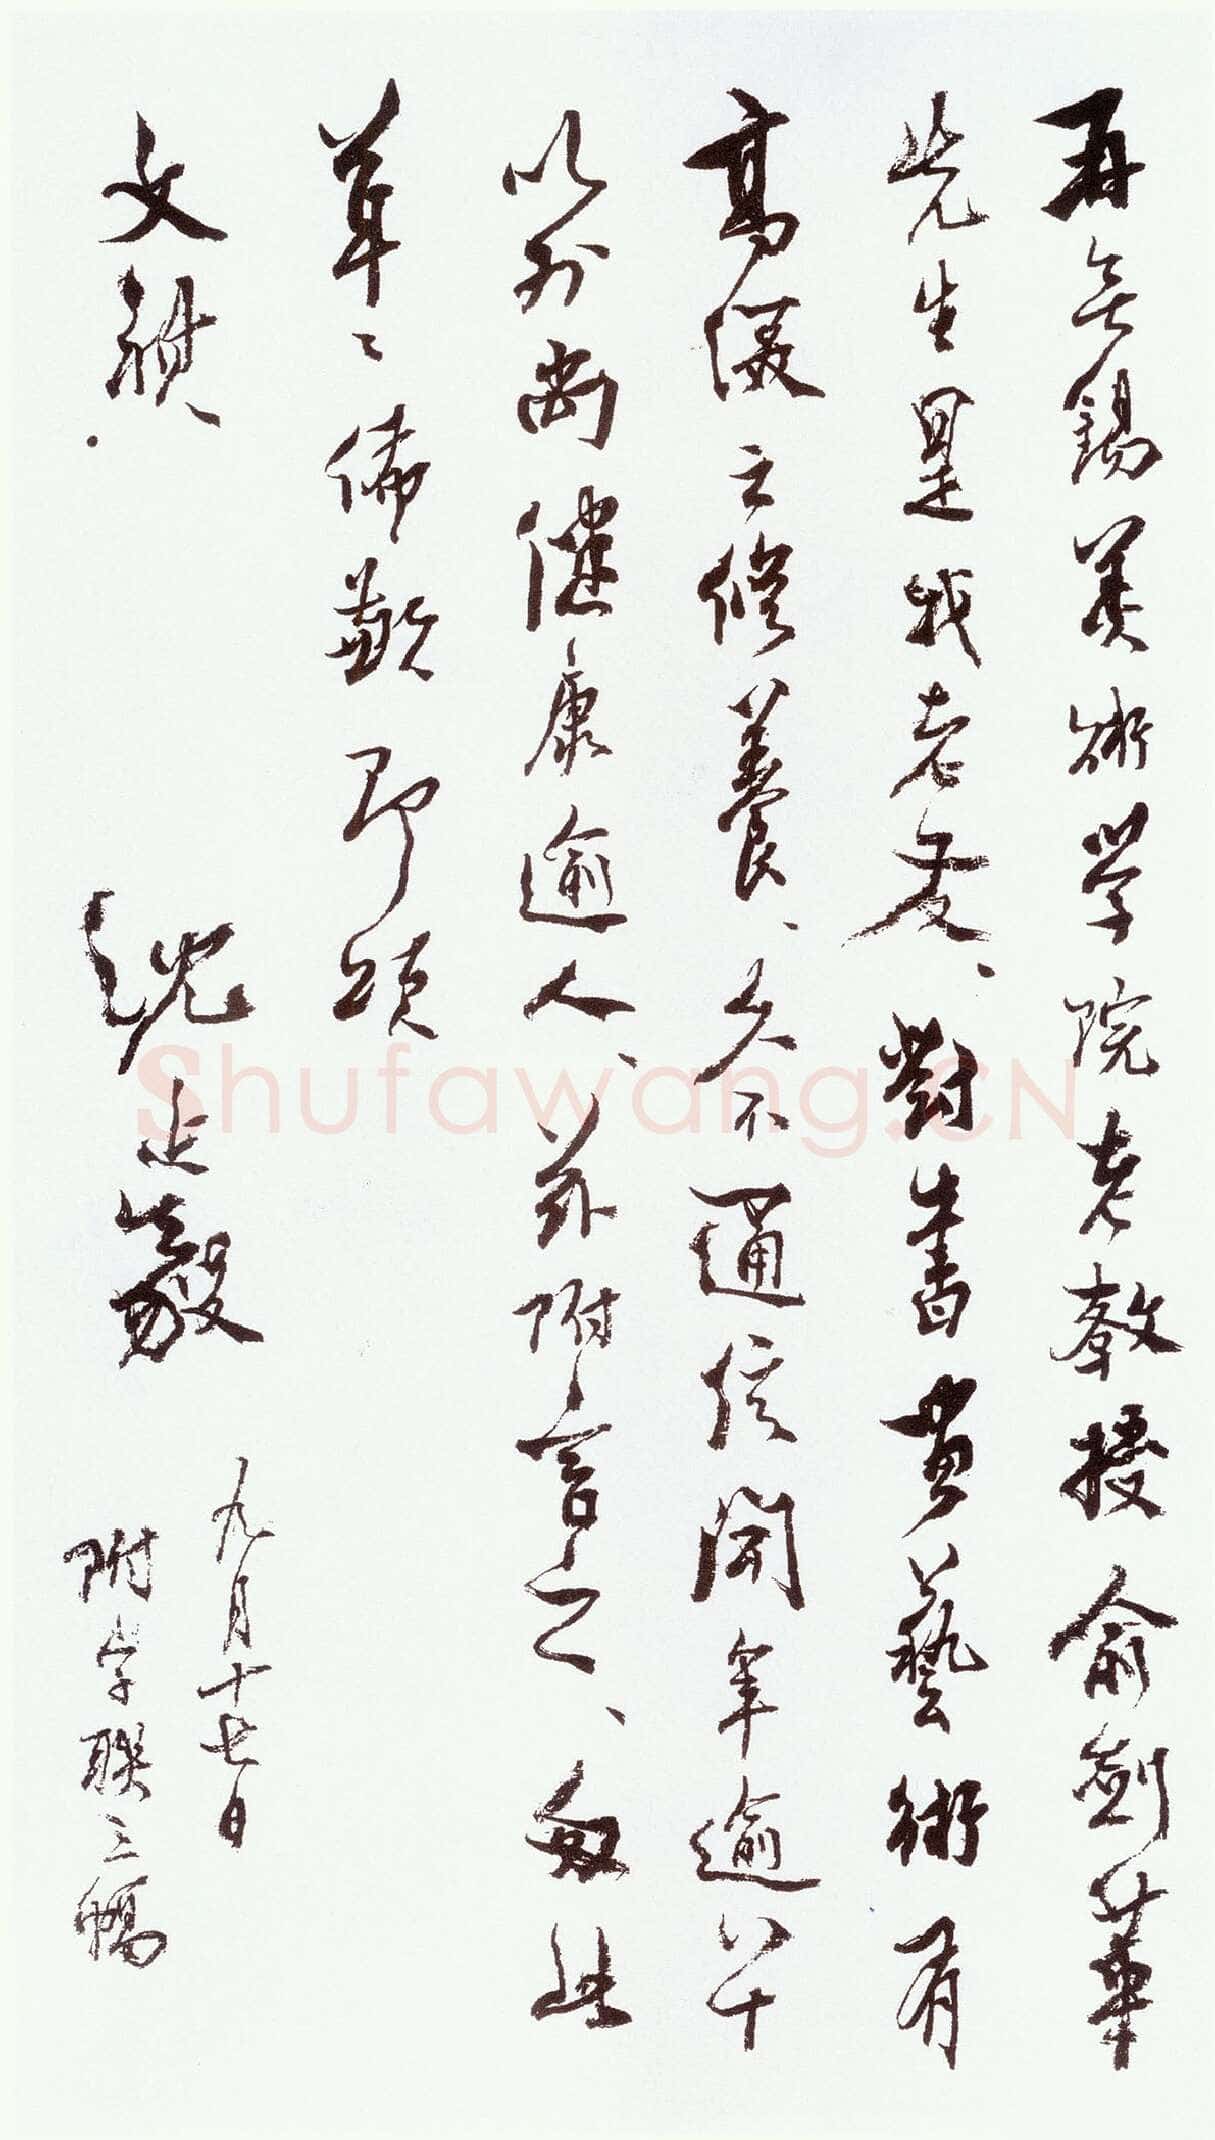 再無錫美術学院老教授俞劍華
先生是我老友、對書畫藝術有
高深之修養、久不通信聞年逾八十
以外尚健康逾人、兹附言之、匆此
草々 佈歉 即頌
文祺.
沈 正
九月十七日
附字联三幅
Shufawang.CN